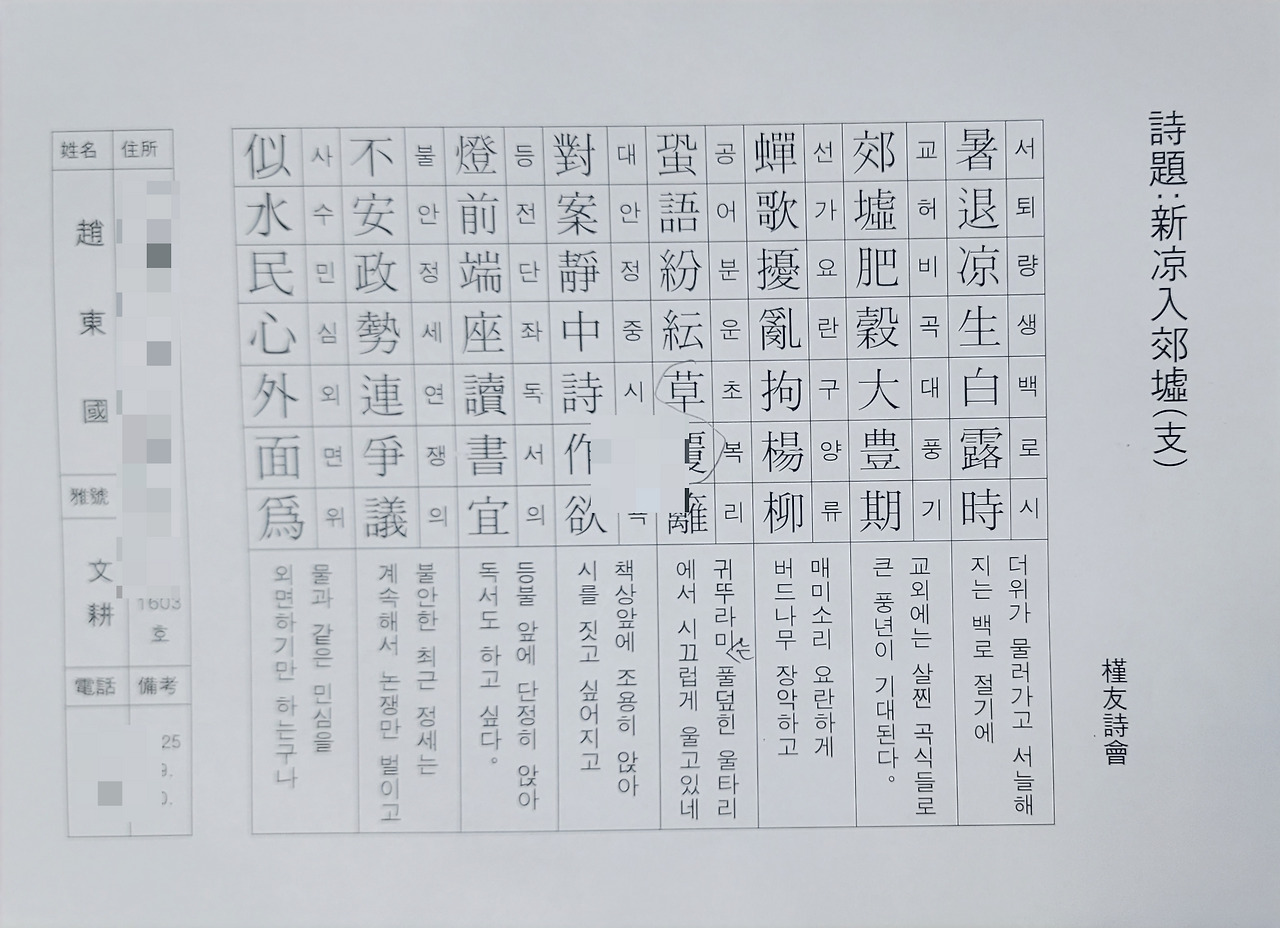 詩題:新凉入郊墟(支)
槿友詩會
서퇴량생백로시
暑退凉生白露時
더위가 물러가고 서늘해
지는 백로 절기에
교허비곡대풍기
郊墟肥穀大豊期
교외에는 살찐 곡식들로
큰 풍년이 기대된다。
선가요란구양류
蟬歌擾亂拘楊柳
매미소리 요란하게
버드나무 장악하고
공어분운초복리
蛩語紛紜草覆離
귀뚜라미는 풀덮힌 울타리
에서 시끄럽게 울고있네
대안정중시
對案靜中詩作欲
책상앞에 조용히 앉아
시를 짓고 싶어지고
등전단좌독서의
燈前端座讀書宜
등불 앞에 단정히 앉아
독서도 하고 싶다。
불안정세연쟁의
不安政勢連爭議
불안한 최근 정세는
계속해서 논쟁만 벌이고
사수민심외면위
似水民心外面爲
물과 같은 민심을
외면하기만 하는구나
住所
1603
호
備考
25
姓名
趙東國
雅號
文耕
電話